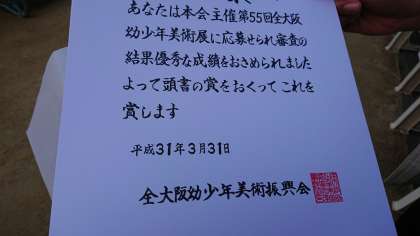 あなたは本会主催第55回全大阪
幼少年美術展に応募せられ審査の
結果優秀な成績をおさめられました
よって頭書の賞をおくってこれを
賞します
平成31年3月31日
全大阪幼少年美術振興会